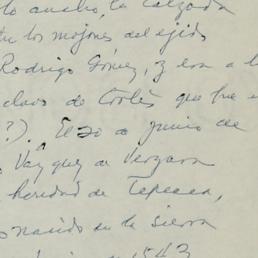 lo ancho, la calzada
los mojones del ejido
Rodrigo Gómez, y era a l
clavo de Cortés que fue
?). El 20 de junio de
Vazquez de Vergara
heredad de Tepeaca,
nacido en la sierra
1543